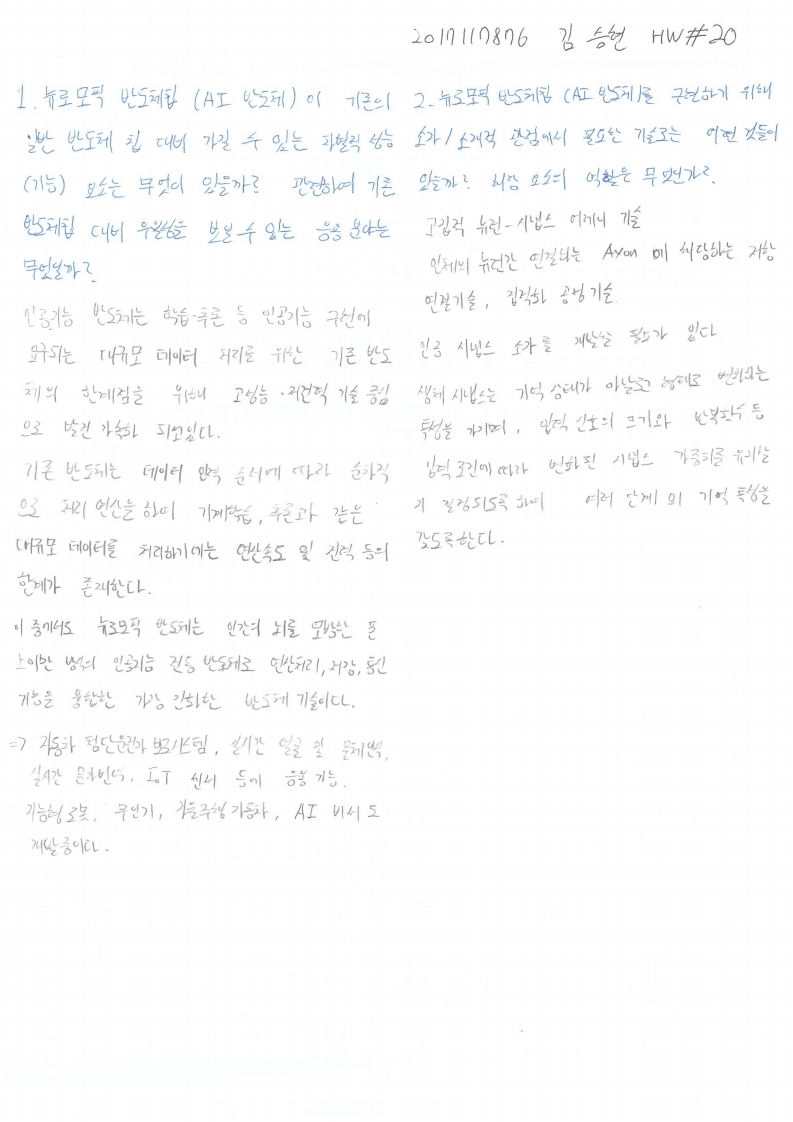 2017117876 김승현 HW#20
1. 뉴로모픽 반도체칩 (AI 반도체) 이 기존의
일반 반도체 칩 대비 가질 수 있는 차별적 성능
(기능) 요소는 무엇이 있을까? 관련하여 기존
반도체칩 대비 우월성을 보일 수 있는 응용 분야는
무엇일까?
인공지능 반도체는 학습·추론 등 인공지능 구현에
요구되는 대규모 데이터 처리를 위한 기존 반도
체의 한계점을 위해 고성능·저전력 기술 중심
으로 발전 가속화 되고있다.
기존 반도체는 데이터 입력 순서에 따라 순차적
으로 처리 연산을 하여 기계학습, 추론과 같은
대규모 데이터를 처리하기에는 연산속도 및 전력 등의
한계가 존재한다.
이 중에서도 뉴로모픽 반도체는 인간의 뇌를 모방한 폰
노이만 방식의 인공지능 전용 반도체로 연산처리, 저장, 통신
기능을 융합한 가장 진화한 반도체 기술이다.
=> 자동차 첨단운전자 보조시스템, 실시간 얼굴 및 문제인식,
실시간 문자번역, IoT 센서 등에 응용 가능.
지능형 로봇, 무인기, 자율주행 자동차, AI 비서 도
개발 중이다.
2. 뉴로모픽 반도체칩 (AI 반도체)를 구현하기 위해
소자/소재적 관점에서 필요한 기술로는 어떤 것들이
있을까? 해당 요소의 역할은 무엇인가?
고집적 뉴런-시냅스 어레이 기술
인체의 뉴런간 연결되는 Axon 에 해당하는 저항
연결기술, 집적화 공정 기술.
인공 시냅스 소자를 개발할 필요가 있다
생체 시냅스는 기억 상태가 아날로그 형태로 변화하는
특성을 가지며, 입력 신호의 크기와 반복횟수 등
입력 조건에 따라 변화된 시냅스 가중치를 유지할
지 결정되도록 하여 여러 단계의 기억 특성을
갖도록한다.